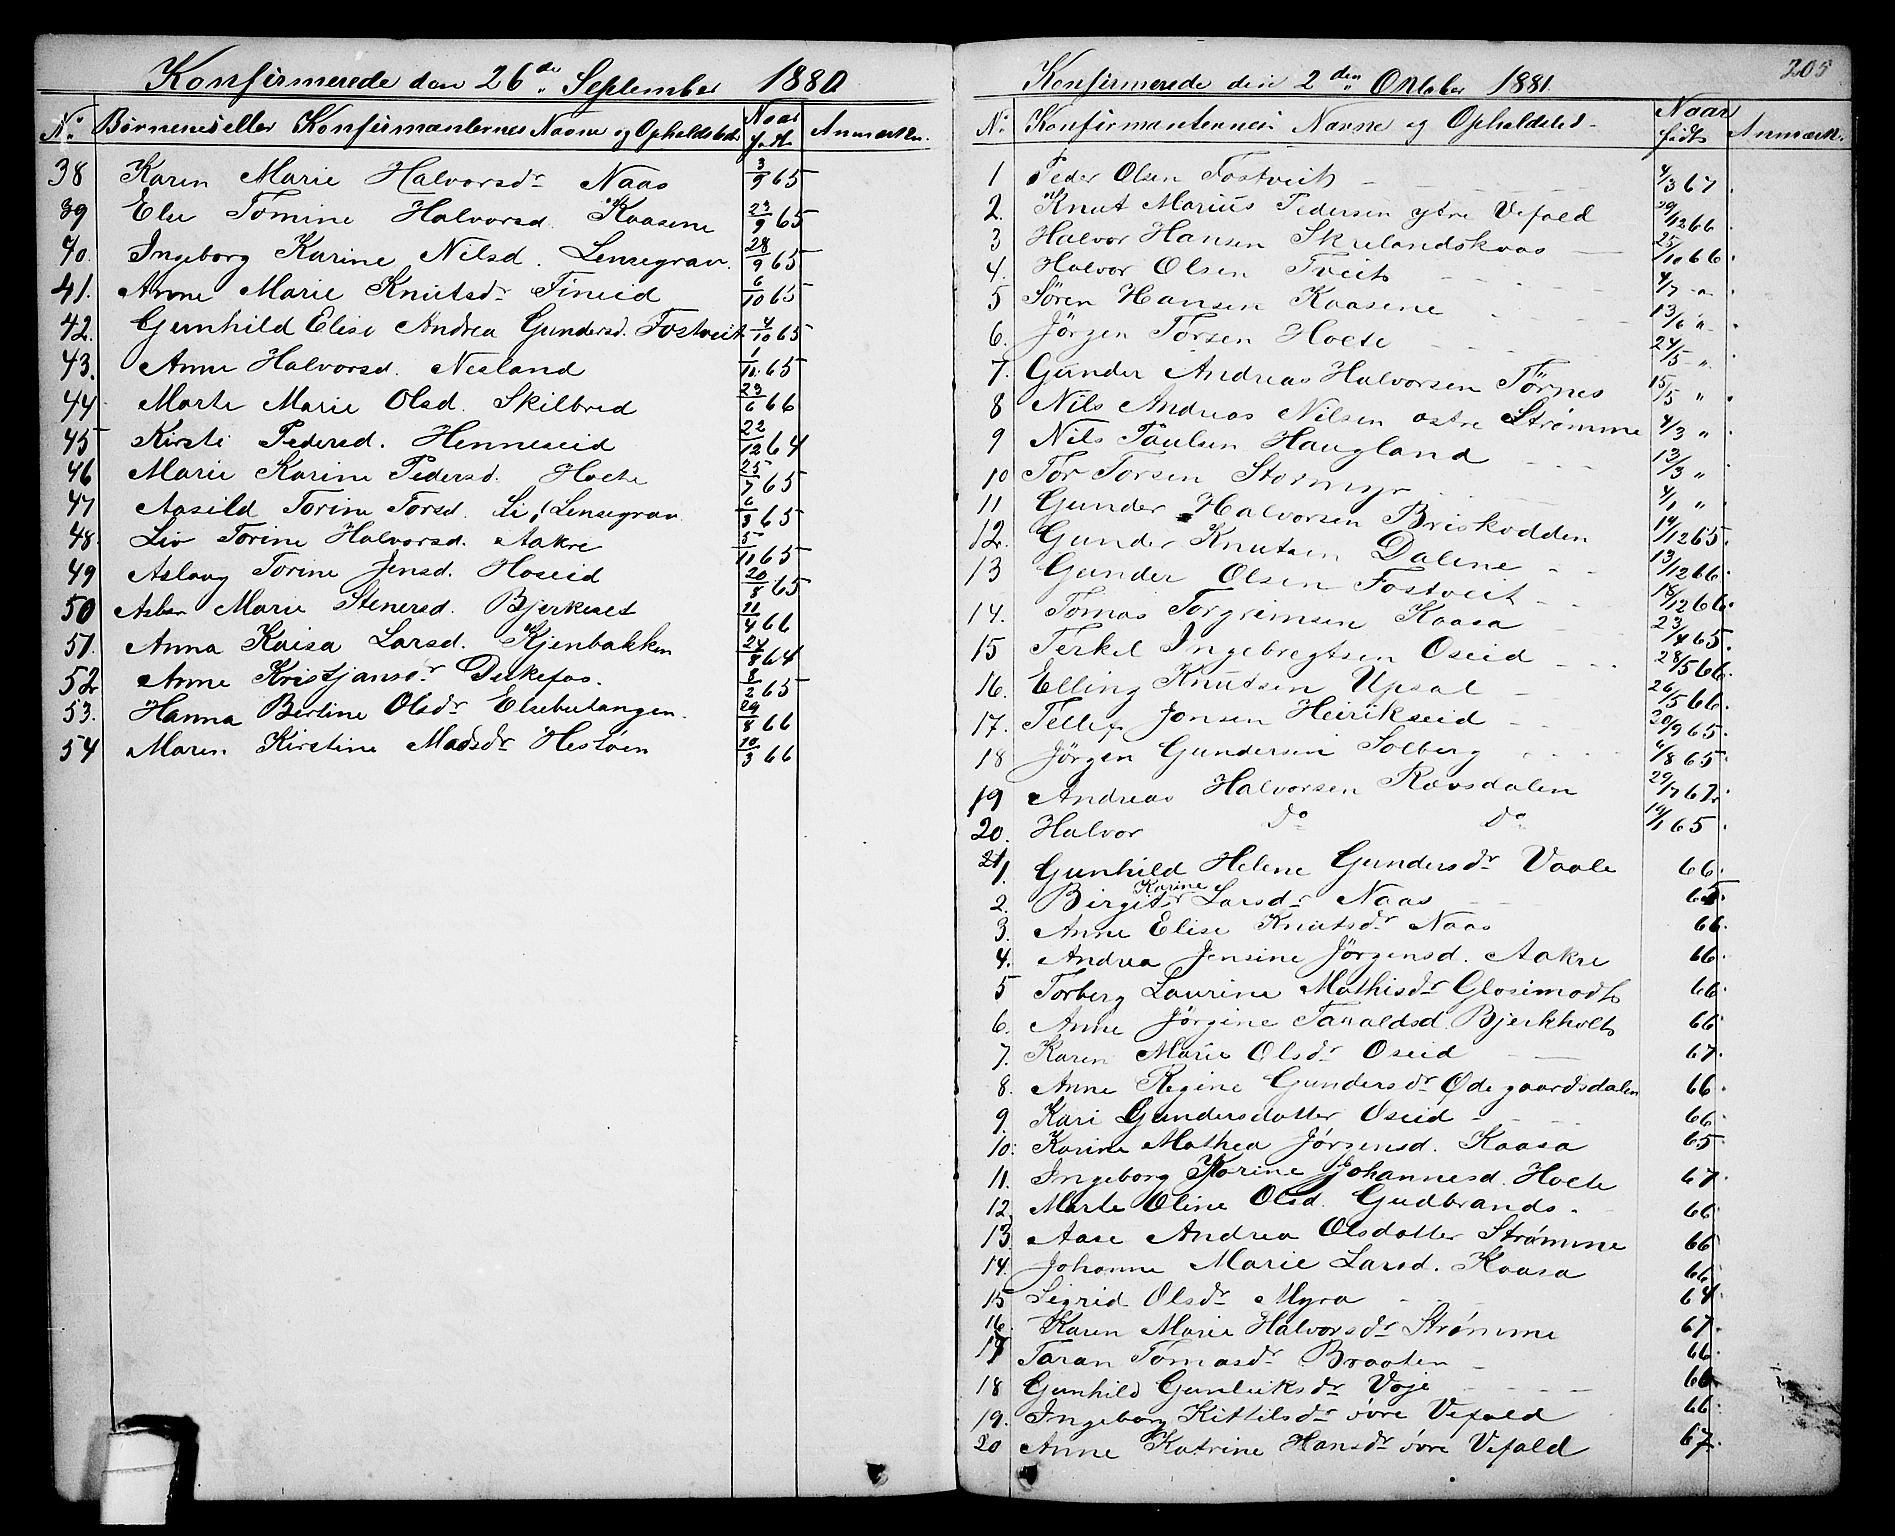 Konfirmerede den 26de September 1880
No Børnenes eller Konfirmanternes Navne og Opholdsted Naar født Anmærkn.
38 Karen Marie Halvorsdr Naas 3/9 65
39 Else Tomine Halvorsd. Kaasene 23/9 65
40. Ingeborg Karine Nilsd. Lensegrav. 28/9 65
41. Anne Marie Knutsdr Fineid 6/10 65
42. Gunhild Elise Andrea Gundersd. Fostveit 4/10 65
43. Anne Halvorsd. Nesland 1/11 65
44 Marte Marie Olsd. Skilbred 23/6 66
45 Kirsti Pedersd. Henneseid 22/12 64
46 Marie Karine Pedersd. Holte 25/7 65
47 Aasild Torine Torsd. Li / Lensegrav 6/8 65
48. Liv Torine Halvorsd. Aakre 5/11 65
49 Aslaug Torine Jensd. Hoseid 20/8 65
50 Marie Stenersd. Bjerkeset 11/4 66
51. Anna Kaisa Larsd. Kjenbakken 24/8 64
52 Anne Kristjansdr Dukefos. 8/2 65
53. Hanna Bertine Olsdr Elsebutangen. 29/8 66
54 Maren Kirstine Madsdr Hestøen 10/3 66
205
Konfirmerede den 2den Oktober 1881.
No Konfirmanternes Navne og Opholdsted Naar født Anmærk.
1 Peder Olsen Fostveit 4/3 67
2. Knut Marius Pedersen ytre Vefald 29/12 66
3 Halvor Hansen Skrelandskaas 25/10 66
4. Halvor Olsen Tveit 4/7 "
5 Søren Hansen Kaasene 13/6 "
6. Jörgen Torsen Holte 24/5 "
7. Gunder Andreas Halvorsen Törnes 15/5 "
8 Nils Andreas Nilsen østre Strømme 4/3 "
9 Nils Paulsen Haugland 13/3 "
10 Tor Torsen Stormyr 4/1 "
11 Gunder Halvorsen Briskodden 14/12 65
12. Gunder Knutsen Dalene 13/12 66
13 Gunder Olsen Fostveit 18/12 66
14. Tomas Torgrimsen Kaasa 23/4 65
15 Terkel Ingebregtsen Oseid 28/5 66
16. Elling Knutsen Upsal 26/5 66
17. Tellef Jonsen Heirikseid 20/9 65
18 Jörgen Gundersen Solberg 6/8 65
19 Andreas Halvorsen Ravsdalen 29/7 67
20. Halvor do do 19/1 65
21 1. Gunhild Helene Gundersdr Vaale 66
2. Birgit Karine Larsdr Naas 65
3. Anne Elise Knutsdr Naas 66
4. Andrea Jensine Jörgensd. Aakre 66
5 Torberg Laurine Mathisdr Glosimodt 66
6. Anne Jørgine Taraldsd. Bjerkholt 66
7. Karen Marie Olsdr Oseid 67
8. Anne Regine Gundersdr Ødegaardsdalen 66
9. Kari Gundersdatter Oseid 66
10. Karine Mathea Jørgensd. Kaasa 65
11. Ingeborg Karine Johannesd. Holte 67
12 Marte Oline Olsd. Gudbrands. 66
13 Aase Andrea Olsdatter Strømme 66
14. Johanne Marie Larsd. Kaasa 66
15 Sigrid Olsdr Myra 64
16. Karen Marie Halvorsdr Strømme 67
17 Taran Tomasdr Braaten 66
18 Gunhild Gunleiksdr Voje 66
19. Ingeborg Kittilsdr øvre Vefald 66
20 Anne Katrine Hansdr øvre Vefald 67